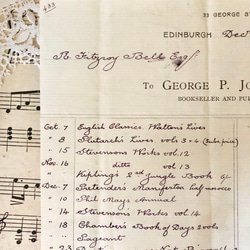 433
33 GEORGE S
EDINBURGH Dec
R. Fitzroy Bell Esq
To GEORGE P. JO
BOOKSELLER AND PU
Oct 7 English Classics. Waltons Lives
" 8 Plutarch's Lives, vols 3 & 4
" 15 Stevensons Works vol. 12
Nov 16 ditto vol. 13
" Kipling's 2nd Jungle Book 6/-
Dec 7 half morocco
" 10 Phil Mays Annual
" 14 Stevensons Works vol 14
" 18 Chambers's Book of Days 2 vols
" Pageant
" 23